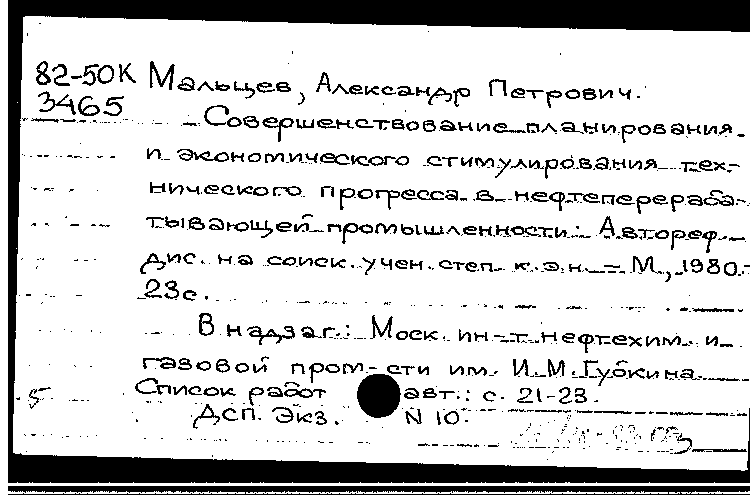 82-50К Мальцев, Александр Петрович.
3465 Совершенствование планирования
и экономического стимулирования тех-
нического прогресса в нефтеперераба-
тывающей промышленности: Автореф.
дис. на соиск. учен. степ. к.э.н. – М., 1980. –
23с.
В надзаг.: Моск. ин-т нефтехим. и
газовой пром-сти им. И.М.Губкина.
Список работ авт.: с. 21-23.
5 ДСП. Экз. N 10.